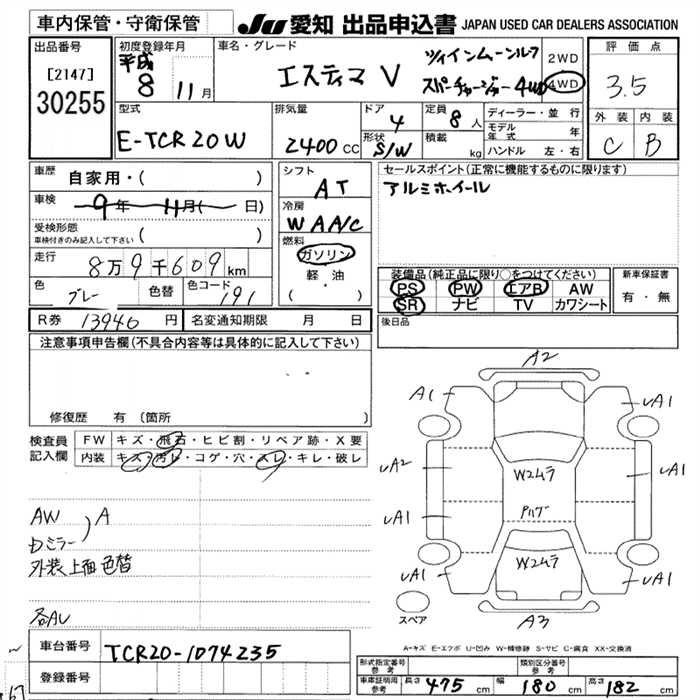 車内保管・守衛保管
JU 愛知 出品申込書 JAPAN USED CAR DEALERS ASSOCIATION
出品番号
[2147]
30255
初度登録年月
平成
8 11月
車名・グレード
エスティマ V
ツインムーンルーフ
スーパーチャージャー 4WD
2WD
4WD
評価点
3.5
外装 内装
C B
型式
E-TCR20W
排気量
2400 CC
ドア
4
形状
S/W
定員
8人
積載
kg
ディーラー・並行
モデル年式 年
ハンドル 左・右
車歴
自家用・( )
車検
9年 11月( 日)
受検形態
車検付きのみ記入して下さい ( )
走行
8万9千609 km
色
グレー
色替
色コード
191
シフト
AT
冷房
W AA/C
燃料
ガソリン
軽油
( ・ )
セールスポイント(正常に機能するものに限ります)
アルミホイール
装備品(純正品に限り○をつけてください)
PS PW エアB AW
SR ナビ TV カワシート
新車保証書
有・無
R券 13940 円
名変通知期限 月 日
後日品
注意事項申告欄(不具合内容等は具体的に記入して下さい)
修復歴 有 〔箇所 〕
検査員
記入欄
FW キズ・飛石・ヒビ割・リペア跡・X要
内装 キズ・汚レ・コゲ・穴・スレ・キレ・破レ
AW
Dミラー ) A
外装上面色替
各AU
A2
A1 UA1
W2ムラ
UA2 UA1
UA1 UA1
W2ムラ
UA1 UA1
スペア
A3
A-キズ E-エクボ U-凹み W-補修跡 S-サビ C-腐食 XX-交換済
車台番号
TCR20-1074235
登録番号
形式指定番号
参考
類別区分番号
参考
車庫証明用
参考
長さ 475 cm 幅 180 cm 高さ 182 cm